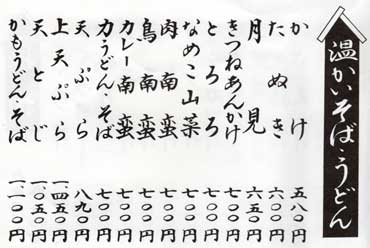 温かいそば・うどん
かけ 五八〇円
たぬき 六五〇円
月見 六五〇円
きつねあんかけ 七〇〇円
とろろ 七〇〇円
なめこ山菜 七〇〇円
肉南蛮 七〇〇円
鳥南蛮 七〇〇円
カレー南蛮 七〇〇円
力うどん・そば 七〇〇円
天ぷら 八九〇円
上天ぷら 一、四五〇円
天とじ 一、〇五〇円
かもうどん・そば 一、一〇〇円